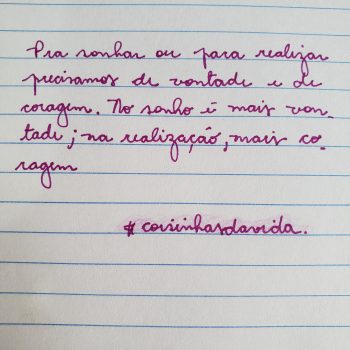 Pra sonhar ou para realizar
precisamos de vontade e de
coragem. No sonho é mais von-
tade; na realização, mais co-
ragem
#coisinhasdavida.